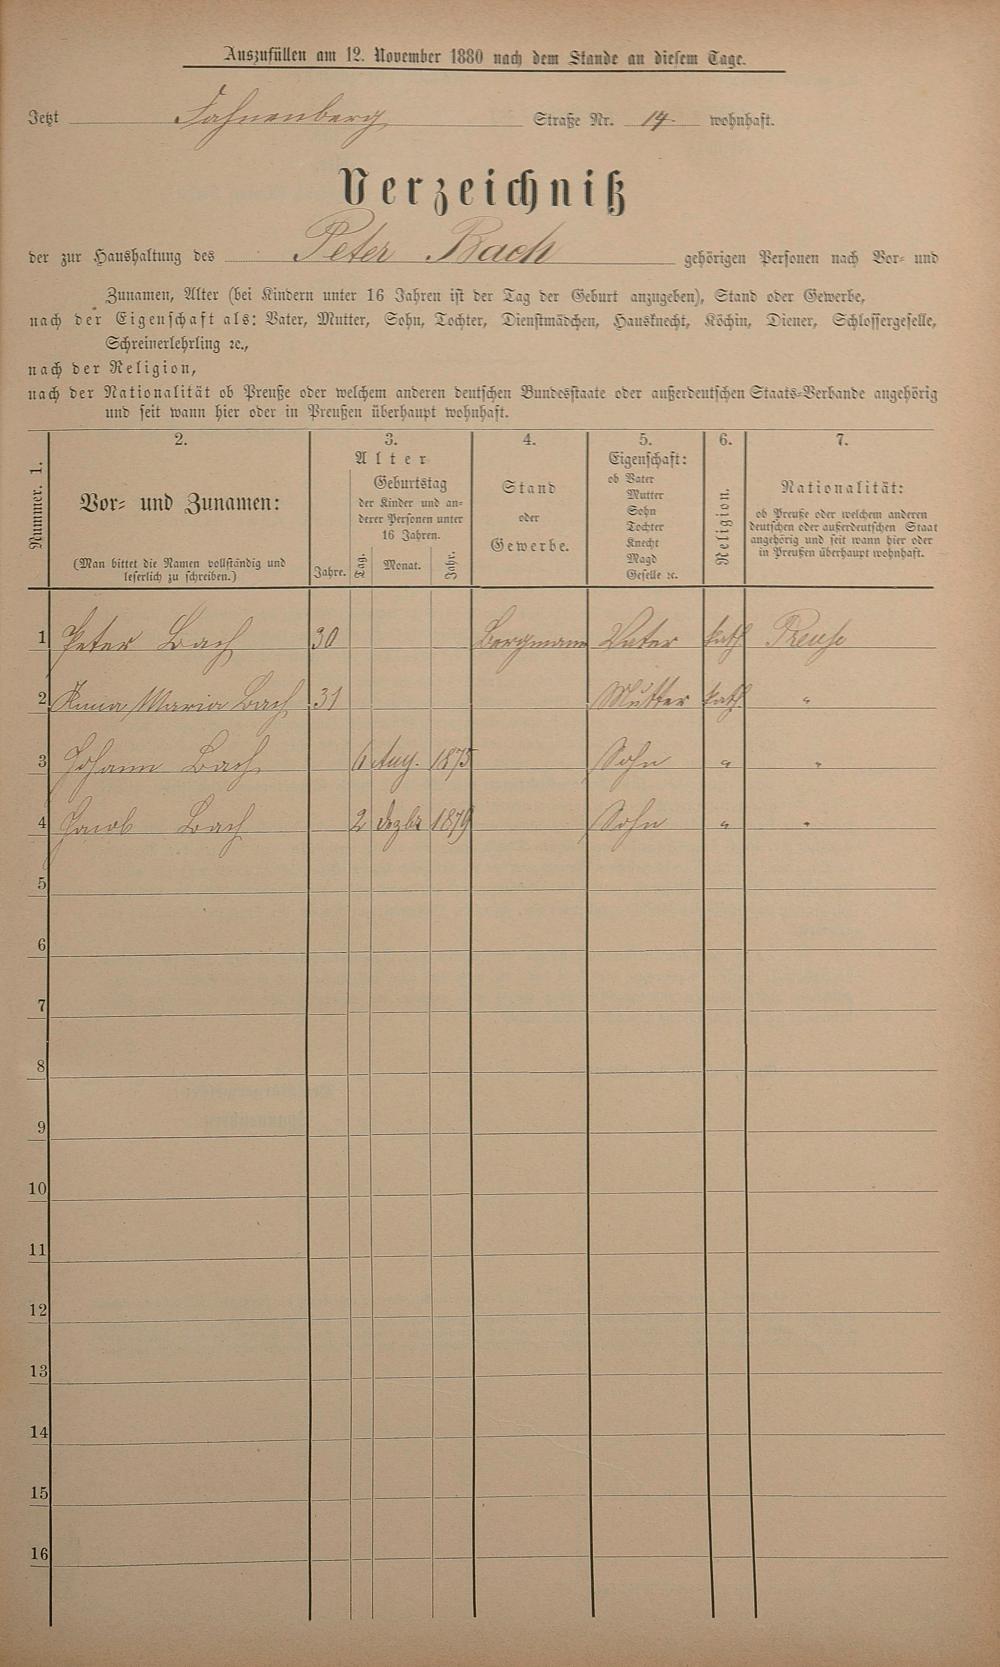 Auszufüllen am 12. November 1880 nach dem Stande an diesem Tage.
Jetzt Fahnenberg Straße Nr. 14 wohnhaft.
Verzeichniß
der zur Haushaltung des Peter Bach gehörigen Personen nach Vor- und
Zunamen, Alter (bei Kindern unter 16 Jahren ist der Tag der Geburt anzugeben), Stand oder Gewerbe,
nach der Eigenschaft als: Vater, Mutter, Sohn, Tochter, Dienstmädchen, Hausknecht, Köchin, Diener, Schlossergeselle,
Schreinerlehrling ꝛc.,
nach der Religion,
nach der Nationalität ob Preuße oder welchem anderen deutschen Bundesstaate oder außerdeutschen Staats-Verbande angehörig
und seit wann hier oder in Preußen überhaupt wohnhaft.
Nummer. 1.
2.
Vor- und Zunamen:
(Man bittet die Namen vollständig und
leserlich zu schreiben.)
3.
Alter
Jahre.
Geburtstag
der Kinder und an-
derer Personen unter
16 Jahren.
Tag.
Monat.
Jahr.
4.
Stand
oder
Gewerbe.
5.
Eigenschaft:
ob Vater
Mutter
Sohn
Tochter
Knecht
Magd
Geselle ꝛc.
6.
Religion.
7.
Nationalität:
ob Preuße oder welchem anderen
deutschen oder außerdeutschen Staat
angehörig und seit wann hier oder
in Preußen überhaupt wohnhaft.
1 Peter Bach 30 Bergmann Vater kath Preuße
2 Anna Maria Bach 31 Mutter kath "
3 Johann Bach 6 Aug. 1875 Sohn " "
4 Jacob Bach 2 Dezbr 1879 Sohn " "
5
6
7
8
9
10
11
12
13
14
15
16